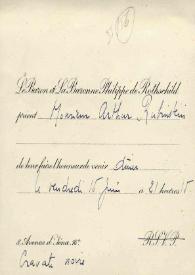 56
Le Baron & La Baronne Philippe de Rothschild
prient Monsieur Arthur Rubinstein
de leur faire l'honneur de venir dîner
le vendredi 15 juin à 21 heures 15
Avenue d'Iéna. 16e
R.S.V.P.
Cravate noire